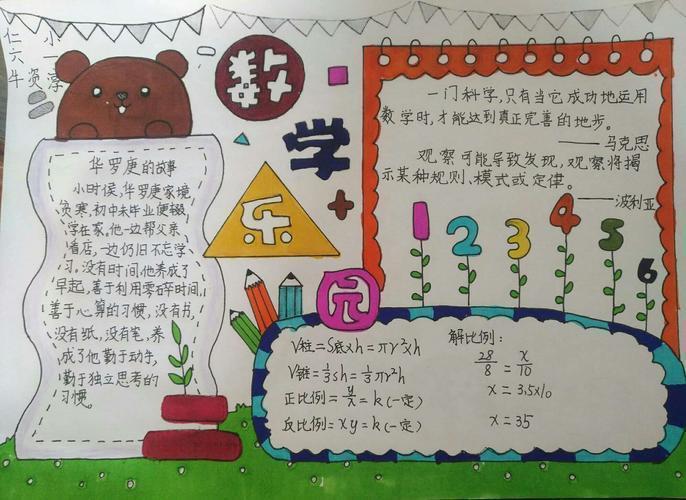 小
一
淳
仁
六
牛
资
数
学
乐
园
华罗庚的故事
小时候,华罗庚家境
贫寒,初中未毕业便辍
学在家。他一边帮父亲
看店,一边仍旧不忘学
习。没有时间,他养成了
早起,善于利用零碎时间,
善于心算的习惯,没有书,
没有纸,没有笔,养
成了他勤于动手,
勤于独立思考的
习惯。
一门科学,只有当它成功地运用
数学时,才能达到真正完善的地步。
——马克思
观察可能导致发现,观察将揭
示某种规则、模式或定律。
——波利亚
1 2 3 4 5 6
V柱=S底×h=πr²×h
V锥=1/3sh=1/3πr²h
正比例=y/x=k(一定)
反比例=xy=k(一定)
解比例:
28/8=x/10
x=3.5×10
x=35